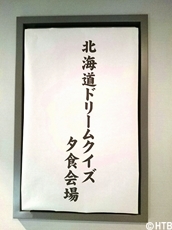 北海道ドリームクイズ
夕食会場
©HTB